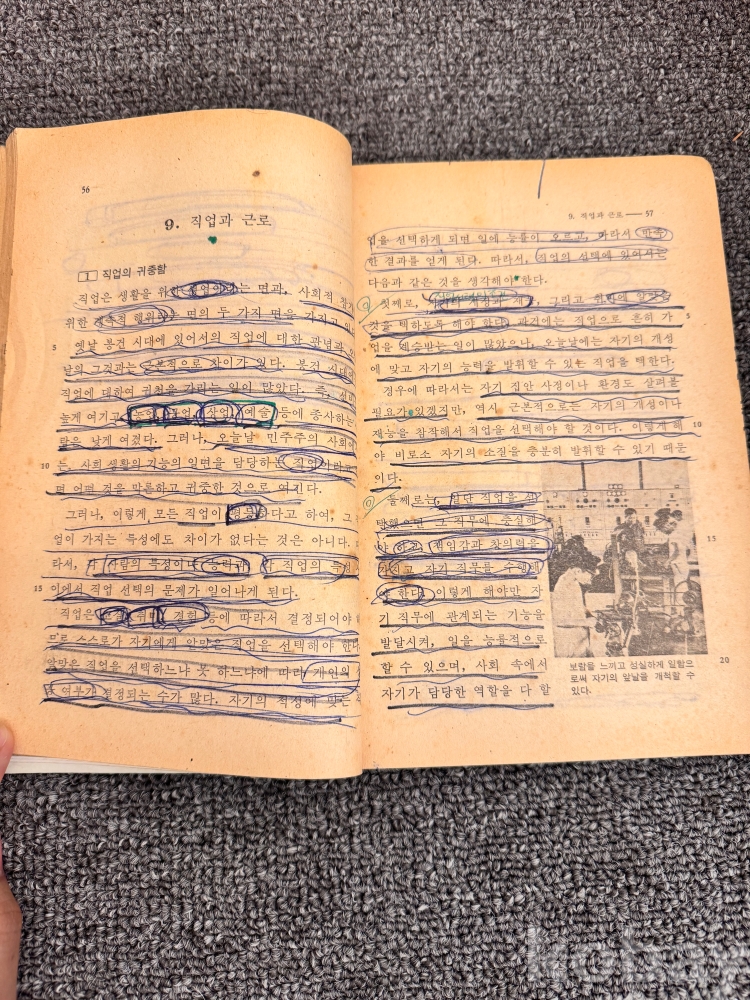 56
9. 직업과 근로
1 직업의 귀중함
직업은 생활을 위한 는 면과, 사회적
위한 행위 는 면의 두 가지 면을 가지고
5 옛날 봉건 시대에 있어서의 직업에 대한 관념과
날의 그것과는 근본적으로 차이가 있다. 봉건 시대
직업에 대하여 귀천을 가리는 일이 많았다. 즉,
높게 여기고 상업 예술 등에 종사하는
람은 낮게 여겼다. 그러나, 오늘날 민주주의 사회에
10 는, 사회 생활의 기능의 일면을 담당하는 직업이라고
면 어떤 것을 막론하고 귀중한 것으로 여긴다.
그러나, 이렇게 모든 직업이 하다고 하여, 그
업이 가지는 특성에도 차이가 없다는 것은 아니다.
라서, 사람의 특성이나 능력과 각 직업의
15 이에서 직업 선택의 문제가 일어나게 된다.
직업은 취미 경험 등에 따라서 결정되어야
므로 스스로가 자기에게 알맞은 직업을 선택해야 한다
알맞은 직업을 선택하느냐 못 하느냐에 따라 개인의
여부가 결정되는 수가 많다. 자기의 적성에 맞는
9. 직업과 근로 — 57
업을 선택하게 되면 일에 능률이 오르고, 따라서 만족
한 결과를 얻게 된다. 따라서, 직업의 선택에 있어서는
다음과 같은 것을 생각해야 한다.
첫째로, 자기의 개성과 재 그리고 취미에 알맞은
것을 택하도록 해야 한다. 과거에는 직업으로 흔히 가 5
업을 계승받는 일이 많았으나, 오늘날에는 자기의 개성
에 맞고 자기의 능력을 발휘할 수 있는 직업을 택한다.
경우에 따라서는 자기 집안 사정이나 환경도 살펴볼
필요가 있겠지만, 역시 근본적으로는 자기의 개성이나
재능을 참작해서 직업을 선택해야 할 것이다. 이렇게 해 10
야 비로소 자기의 소질을 충분히 발휘할 수 있기 때문
이다.
둘째로는, 일단 직업을 선
택했으면 그 직무에 충실해
야 하고, 책임감과 창의력을 15
가지고 자기 직무를 수행해
야 한다. 이렇게 해야만 자
기 직무에 관계되는 기능을
발달시켜, 일을 능률적으로
할 수 있으며, 사회 속에서
자기가 담당한 역할을 다 할
보람을 느끼고 성실하게 일함으 20
로써 자기의 앞날을 개척할 수
있다.